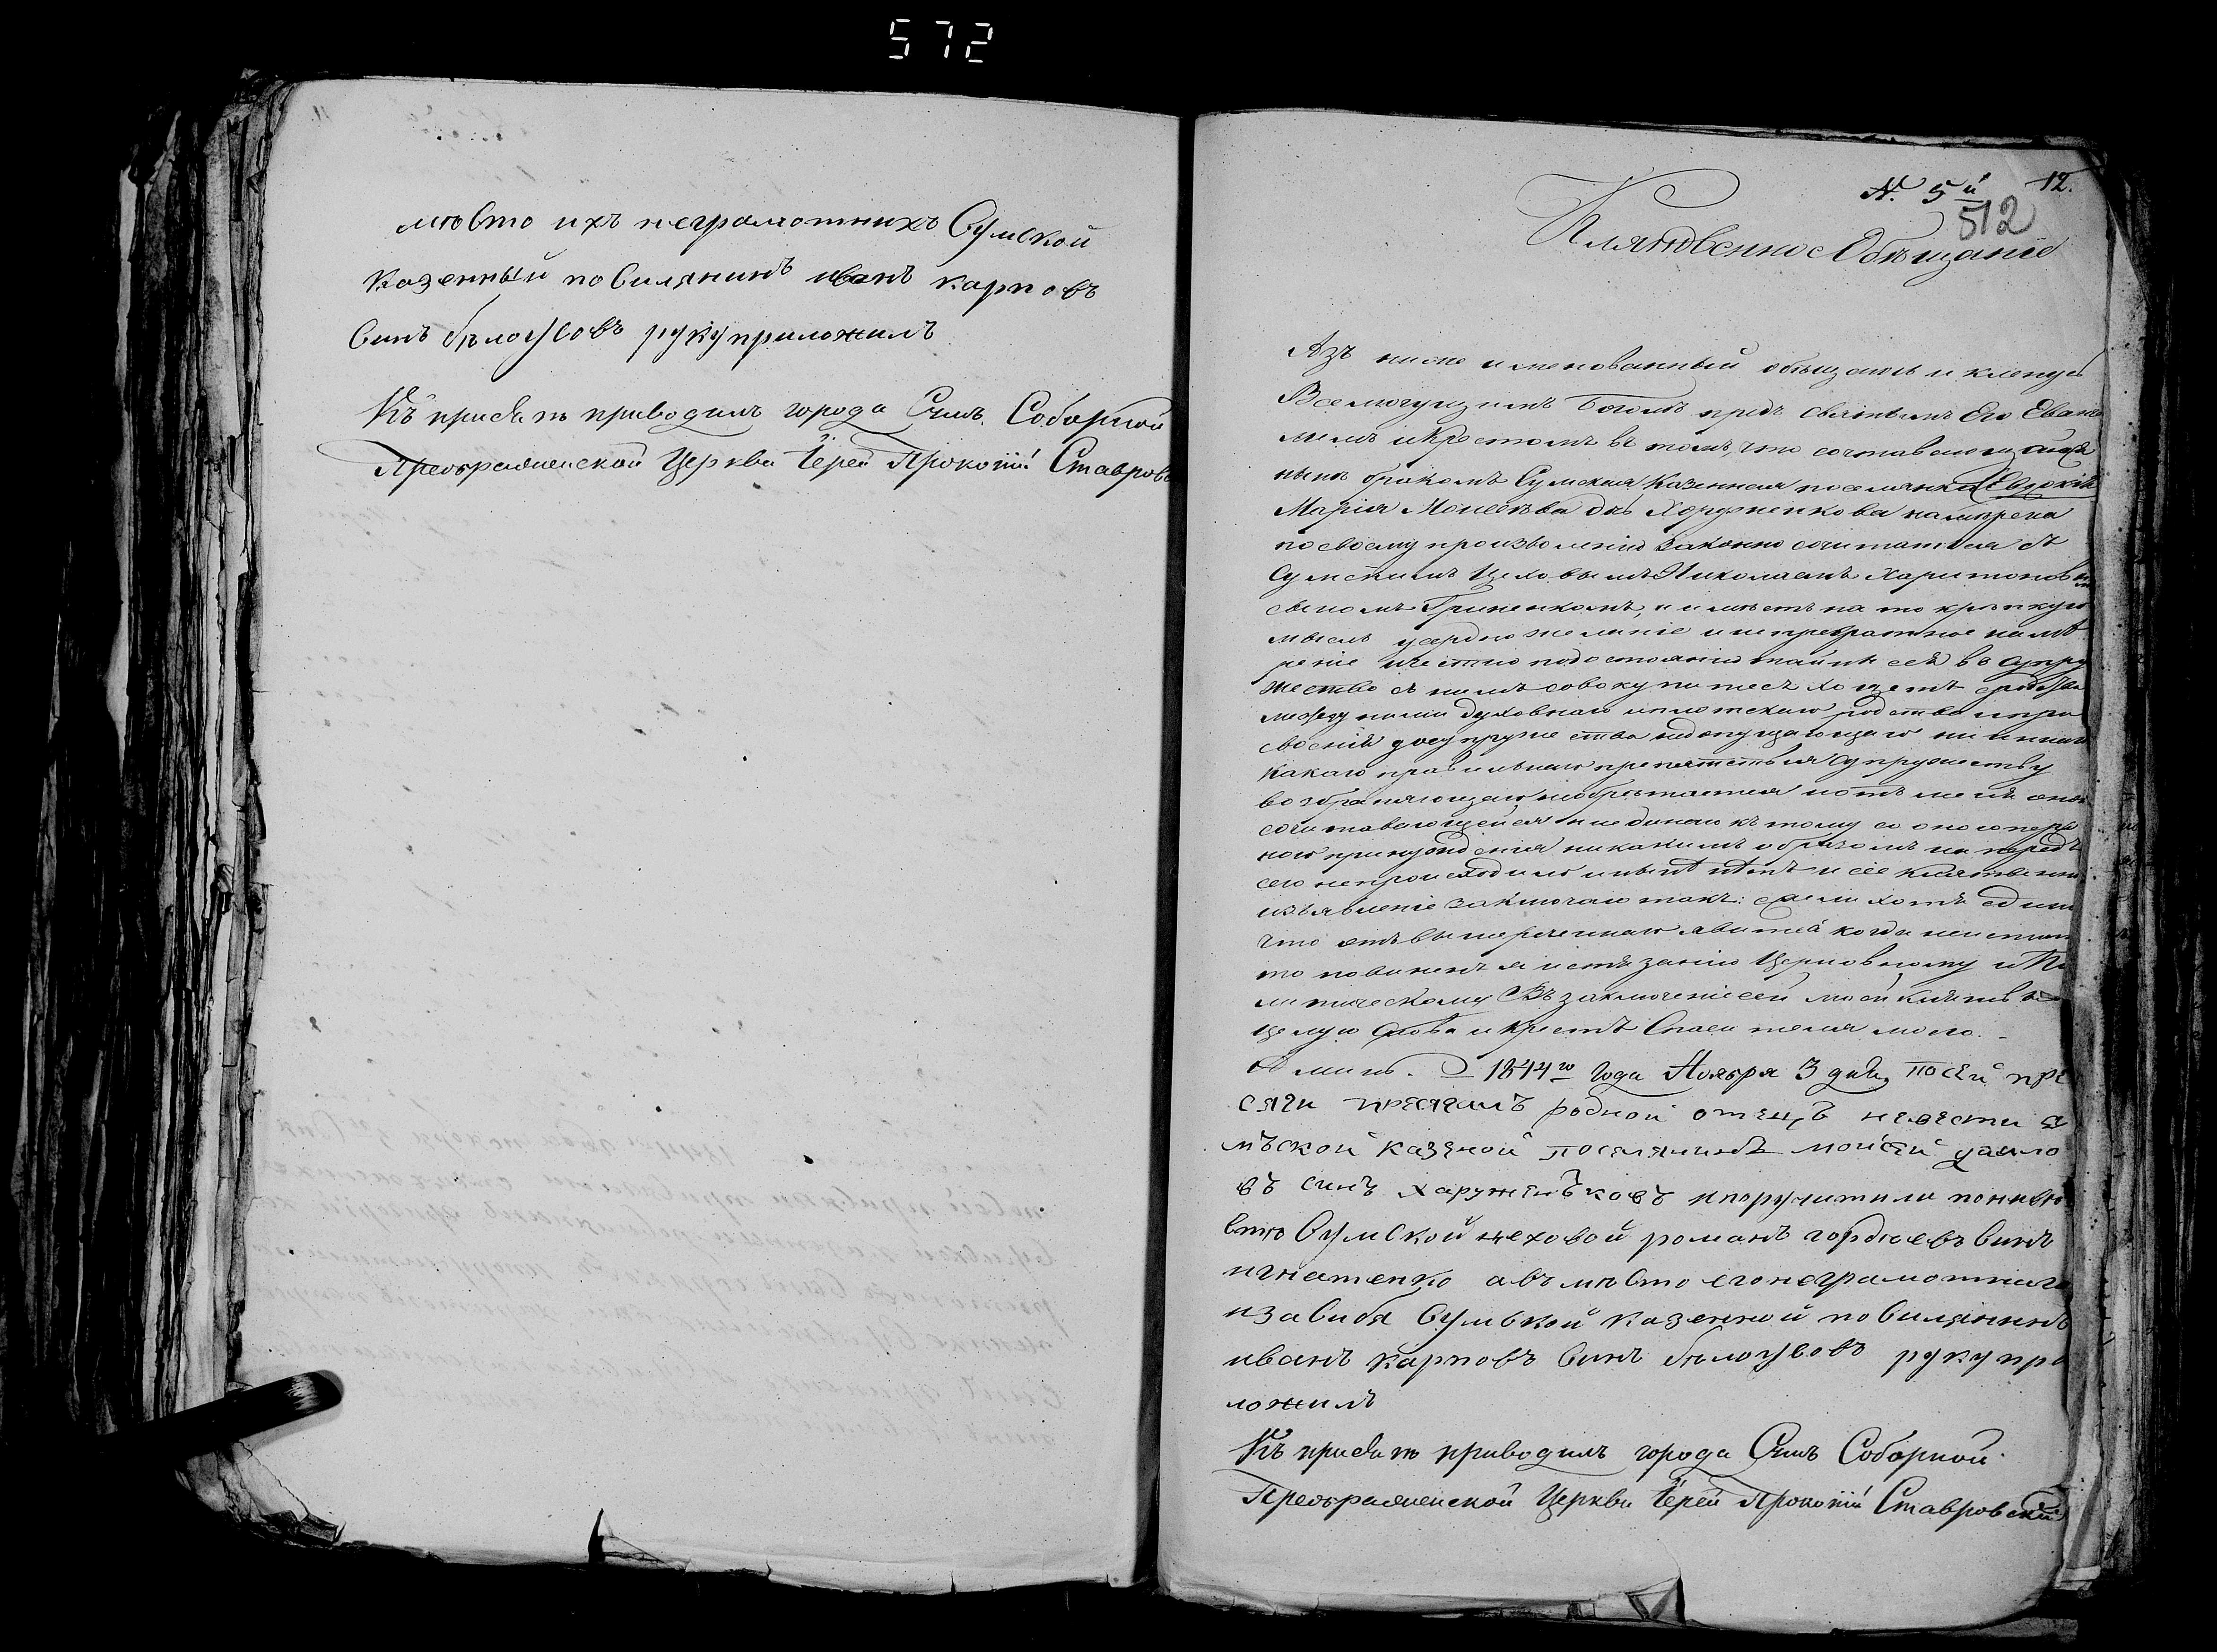 572
мѣсто ихъ неграмотнихъ Сумской
Казенный посилянинъ иванъ карповъ
синъ бѣлоусовъ руку приложилъ
Къ присягѣ приводилъ города Сумъ Соборной
Преображенской Церкви Іерей Прокопій Ставровс
N. 5й 12.
512
Клятвенное Обѣщаніе
Азъ ниже именованный обѣщаюсь и кленусь
Всемогущимъ Богомъ предъ святымъ Его Еванге
лиемъ и Крестомъ въ томъ, что сочтавающаяся
нымъ бракомъ Сумская Казенная поселянка
Марія Моисѣева дь Хоруженкова намѣрена
по своему произволенію законно сочитатися съ
Сумскимъ Цеховымъ Николаемъ Харитоновымъ
сыномъ Гриненкомъ, и имѣетъ на то крѣпкую
мысль усердно желаніе и непревратное намѣ
реніе и честно по достоянію тайны сея въ супру
жество съ нимъ совокупитесь хощетъ сродства
между ними духовнаго и плотскаго родства и при
своенія до супружества недопущающаго ни инаго
какаго правильнаго препятствія супружеству
возбраняющаго необрѣтается и отъ мене оной
сочитавающейся ни единаго къ тому
наго принужденія никакимъ образомъ на предъ
сего непроисходило и нынѣ нѣтъ и сіе клятвенно
изъявленіе заключаю такъ: ежели хотя едино
что отъ вышереченнаго явится когда неистин
то повиненъ я истязанію Церковному и По
литическому Въ заключеніе сей моей клятвы
целую Слова и Крестъ Спасителя моего.
Аминь. 1844го Года Ноября 3 дня, по сей при
сяги присягалъ родной отецъ невести Су
мъской казеной поселянинъ мойсей данило
въ синъ харуженъковъ и поручители по невѣ
стѣ Сумской цеховой романъ гордѣевъ синъ
игнатенко а въ мѣсто его неграмотнаго
и за себя Сумской казенной посилянинъ
иванъ карповъ синъ бѣлоусовъ руку при
ложилъ
Къ присягѣ приводилъ города Сумъ Соборной
Преображенской Церкви Іерей Прокопій Ставровскій